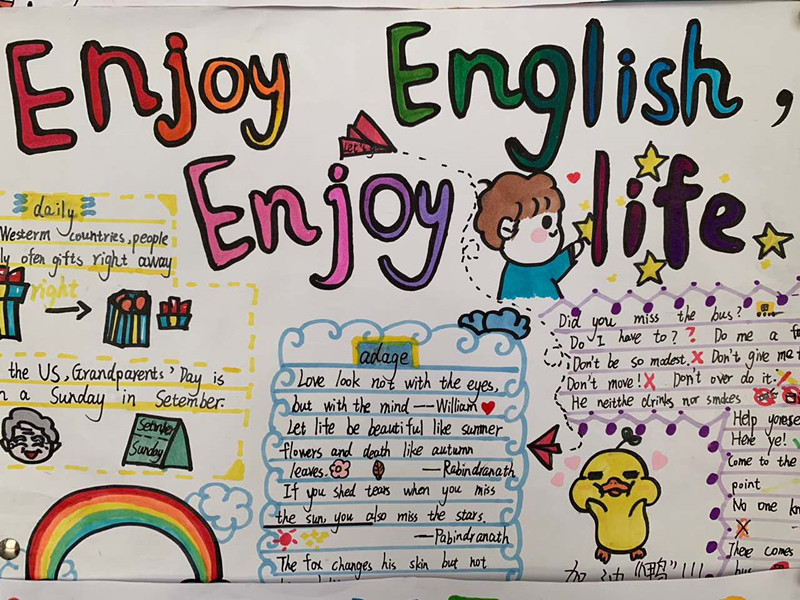 Enjoy English,
Enjoy life
Let's g
daily
Westerm countries, people
ly ofen gifts right away
right
the US, Grandparents' Day is
a Sunday in Setember.
Setmber
Sunday
adage
Love look not with the eyes,
but with the mind — William
Let life be beautiful like summer
flowers and death like autumn
leaves. — Rabindranath
If you shed tears when you miss
the sun, you also miss the stars.
— Pabindranath
The fox changes his skin but not
Did you miss the bus?
Do I have to? ? Do me a fa
Don't be so modest. X Don't give me
Don't move! X Don't over do it.
He neitthe drinks nor smokes
Help yorese
Here ye!
Come to the
point
No one kn
X
There comes
bus
加油"鸭"!!!